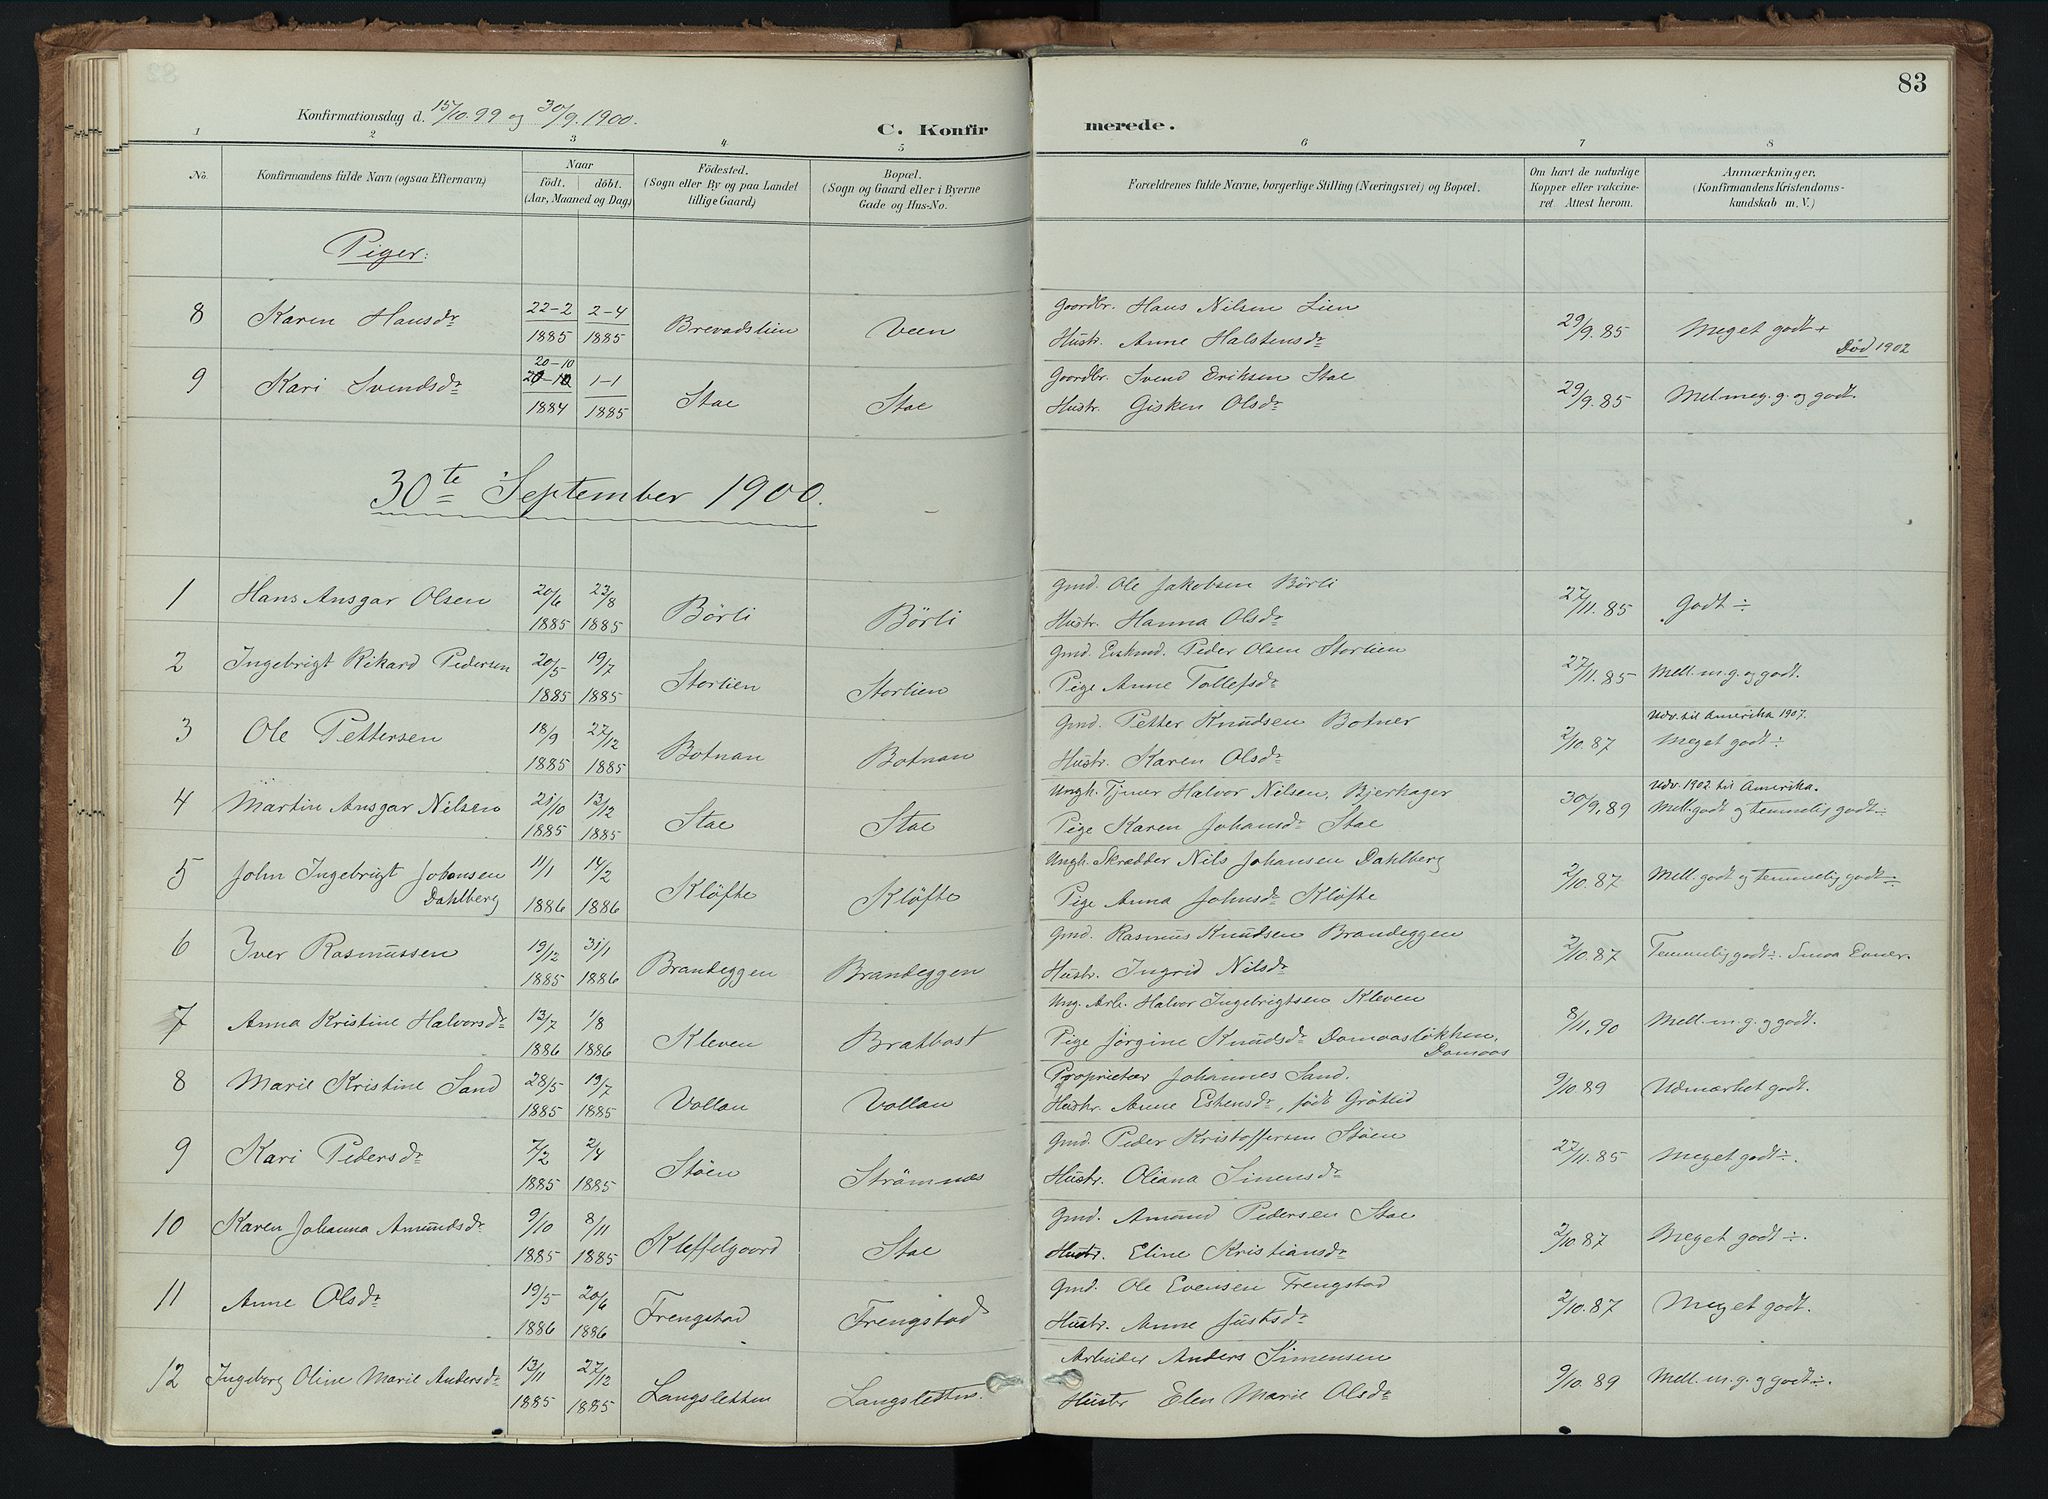 83
Konfirmationsdag d. 15/10.99 og 30/9.1900.
C. Konfirmerede.
1 2 3 4 5 6 7 8
No. Konfirmandens fulde Navn (ogsaa Efternavn) Naar födt. döbt. (Aar, Maaned og Dag) Födested. (Sogn eller By og paa Landet tillige Gaard) Bopæl. (Sogn og Gaard eller i Byerne Gade og Hus-No. Forældrenes fulde Navne, borgerlige Stilling (Næringsvei) og Bopæl. Om havt de naturlige Kopper eller vakcineret. Attest herom. Anmærkninger, (Konfirmandens Kristendomskundskab m. V.)
Piger:
8 Karen Hansdr 22-2 1885 2-4 1885 Brevadslien Veen Gaardbr. Hans Nilsen Lien
Hustr. Anne Halstensdr 29/9.85 Meget godt +
Død 1902
9 Kari Svendsdr 20-10 1884 1-1 1885 Stae Stae Gaardbr. Svend Eriksen Stae
Hustr. Gisken Olsdr 29/9.85 Mel. meg. g. og godt.
30te September 1900.
1 Hans Ansgar Olsen 20/6 1885 23/8 1885 Børli Børli Gmd. Ole Jakobsen Børli
Hustr. Hanna Olsdr 27/11.85 Godt ÷
2 Ingebrigt Rikard Pedersen 20/5 1885 19/7 1885 Storlien Storlien Gmd. Enkmd. Peder Olsen Storlien
Pige Anne Tollefsdr 27/11.85 Mell. m. g. og godt.
3 Ole Pettersen 18/9 1885 27/12 1885 Botnan Botnan Gmd. Petter Knudsen Botner
Hustr. Karen Olsdr 2/10.87 Udv. til Amerika 1907.
Meget godt ÷
4 Martin Ansgar Nilsen 21/10 1885 13/12 1885 Stae Stae Ungk. Tjener Halvor Nilsen, Bjerhager
Pige Karen Johansdr Stae 30/9.89 Udv. 1902 til Amerika.
Mell. godt og temmelig godt ÷
5 John Ingebrigt Johansen
Dahlberg 11/1 1886 14/2 1886 Kløfte Kløfte Ungk. Skrædder Nils Johansen Dahlberg
Pige Anna Johnsdr Kløfte 2/10.87 Mell. godt og temmelig godt ÷
6 Iver Rasmussen 19/12 1885 31/1 1886 Brandeggen Brandeggen Gmd. Rasmus Knudsen Brandeggen
Hustr. Ingrid Nilsdr 2/10.87 Temmelig godt ÷. Smaa Evner.
7 Anna Kristine Halvorsdr 13/7 1886 1/8 1886 Kleven Brakbast Ung. Arb. Halvor Ingebrigtsen Kleven
Pige Jørgine Knudsdr Domaasløkken,
Domaas 8/11.90 Mell. m. g. og godt.
8 Marie Kristine Sand 28/5 1885 19/7 1885 Vollan Vollan Proprietær Johannes Sand.
Hustr. Anne Eskensdr, født Grøtlid 9/10.89 Udmærket godt.
9 Kari Pedersdr 7/2 1885 2/4 1885 Støen Strømnes Gmd. Peder Kristoffersen Støen
Hustr. Oliana Simensdr 27/11.85 Meget godt ÷.
10 Karen Johanna Amundsdr 9/10 1885 8/11 1885 Kleffelgaard Stae Gmd. Amund Pedersen Stae
Hustr. Eline Kristiansdr 2/10.87 Meget godt ÷.
11 Anne Olsdr 19/5 1886 20/6 1886 Frengstad Frengstad Gmd. Ole Evensen Frengstad
Hustr. Anne Justsdr 2/10.87 Meget godt.
12 Ingeborg Oline Marie Andersdr 13/11 1885 27/12 1885 Langsletten Langsletten Arbeider Anders Simensen
Hustr Elen Marie Olsdr 9/10.89 Mell. m. g. og godt ÷.